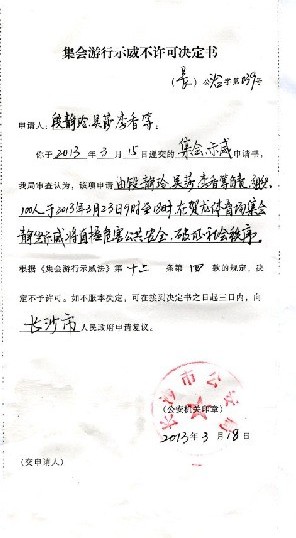 集会游行示威不许可决定书
（长）公治字第039号
申请人：段静玲 吴莎 李香等。
你于2013年3月15日递交的集会示威申请书，
我局审查认为，该项申请由段静玲 吴莎 李香等负责，组织
100人于2013年3月23日9时至18时在贺龙体育场集会
静坐示威将直接危害公共安全、破坏社会秩序。
根据《集会游行示威法》第十二条第四款的规定，决
定不予许可。如不服本决定，可在接到决定书之日起三日内，向
长沙市人民政府申请复议。
长沙市公安局
（公安机关印章）
2013年3月18日
（交申请人）